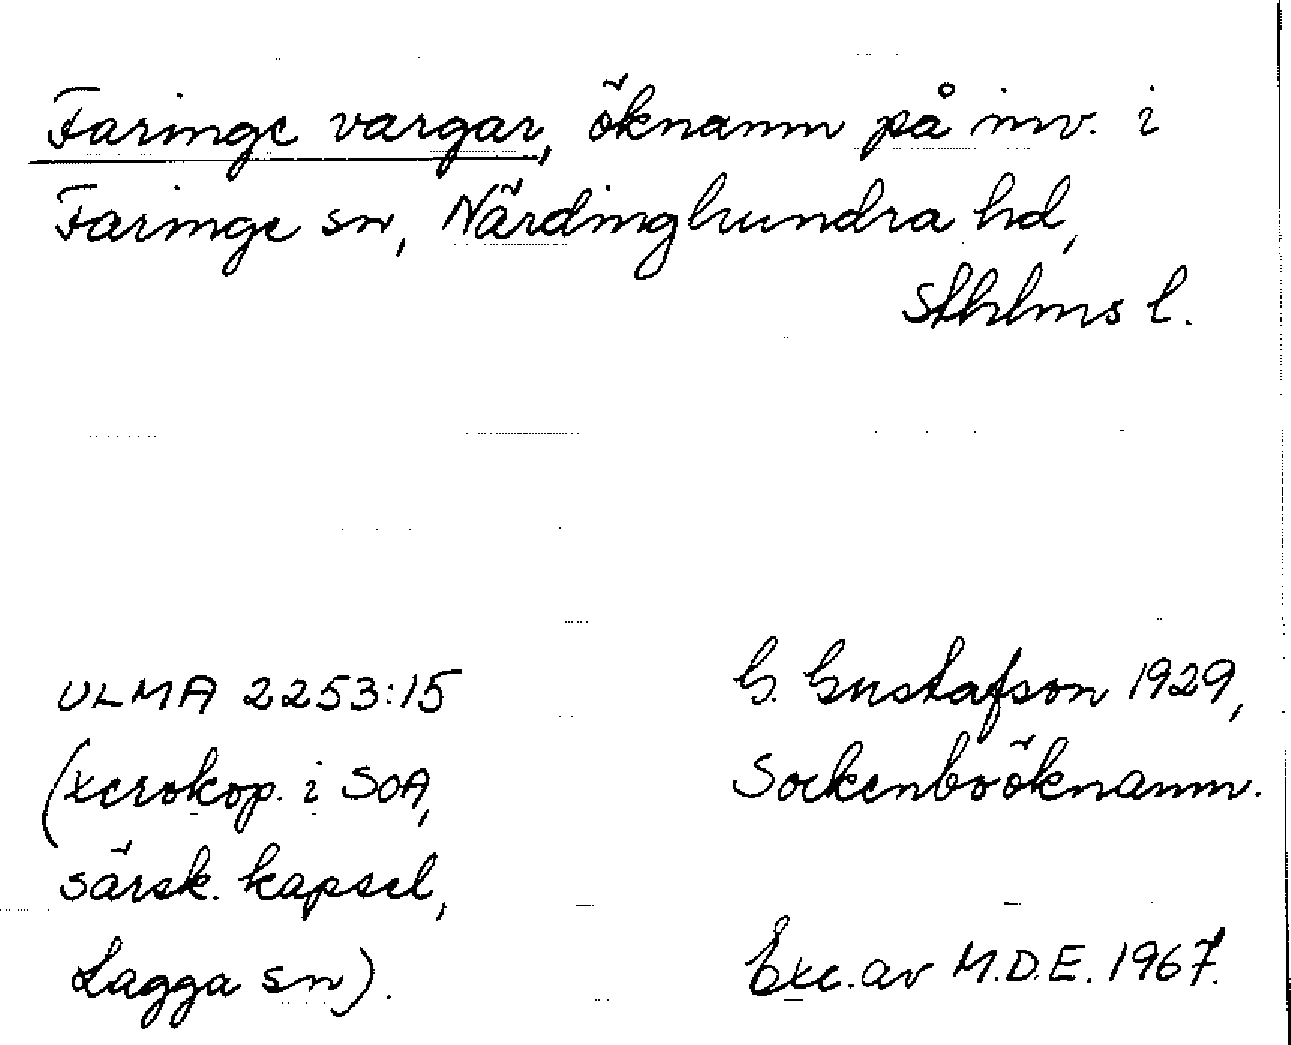 Faringe vargar, öknamn på inv. i
Faringe sn, Närdinghundra hd,
Sthlms l.
ULMA 2253:15
(xerokop. i SOA,
särsk. kapsel,
Lagga sn).
G. Gustafson 1929,
Sockenboöknamn.
Exc. av M.D.E. 1967.